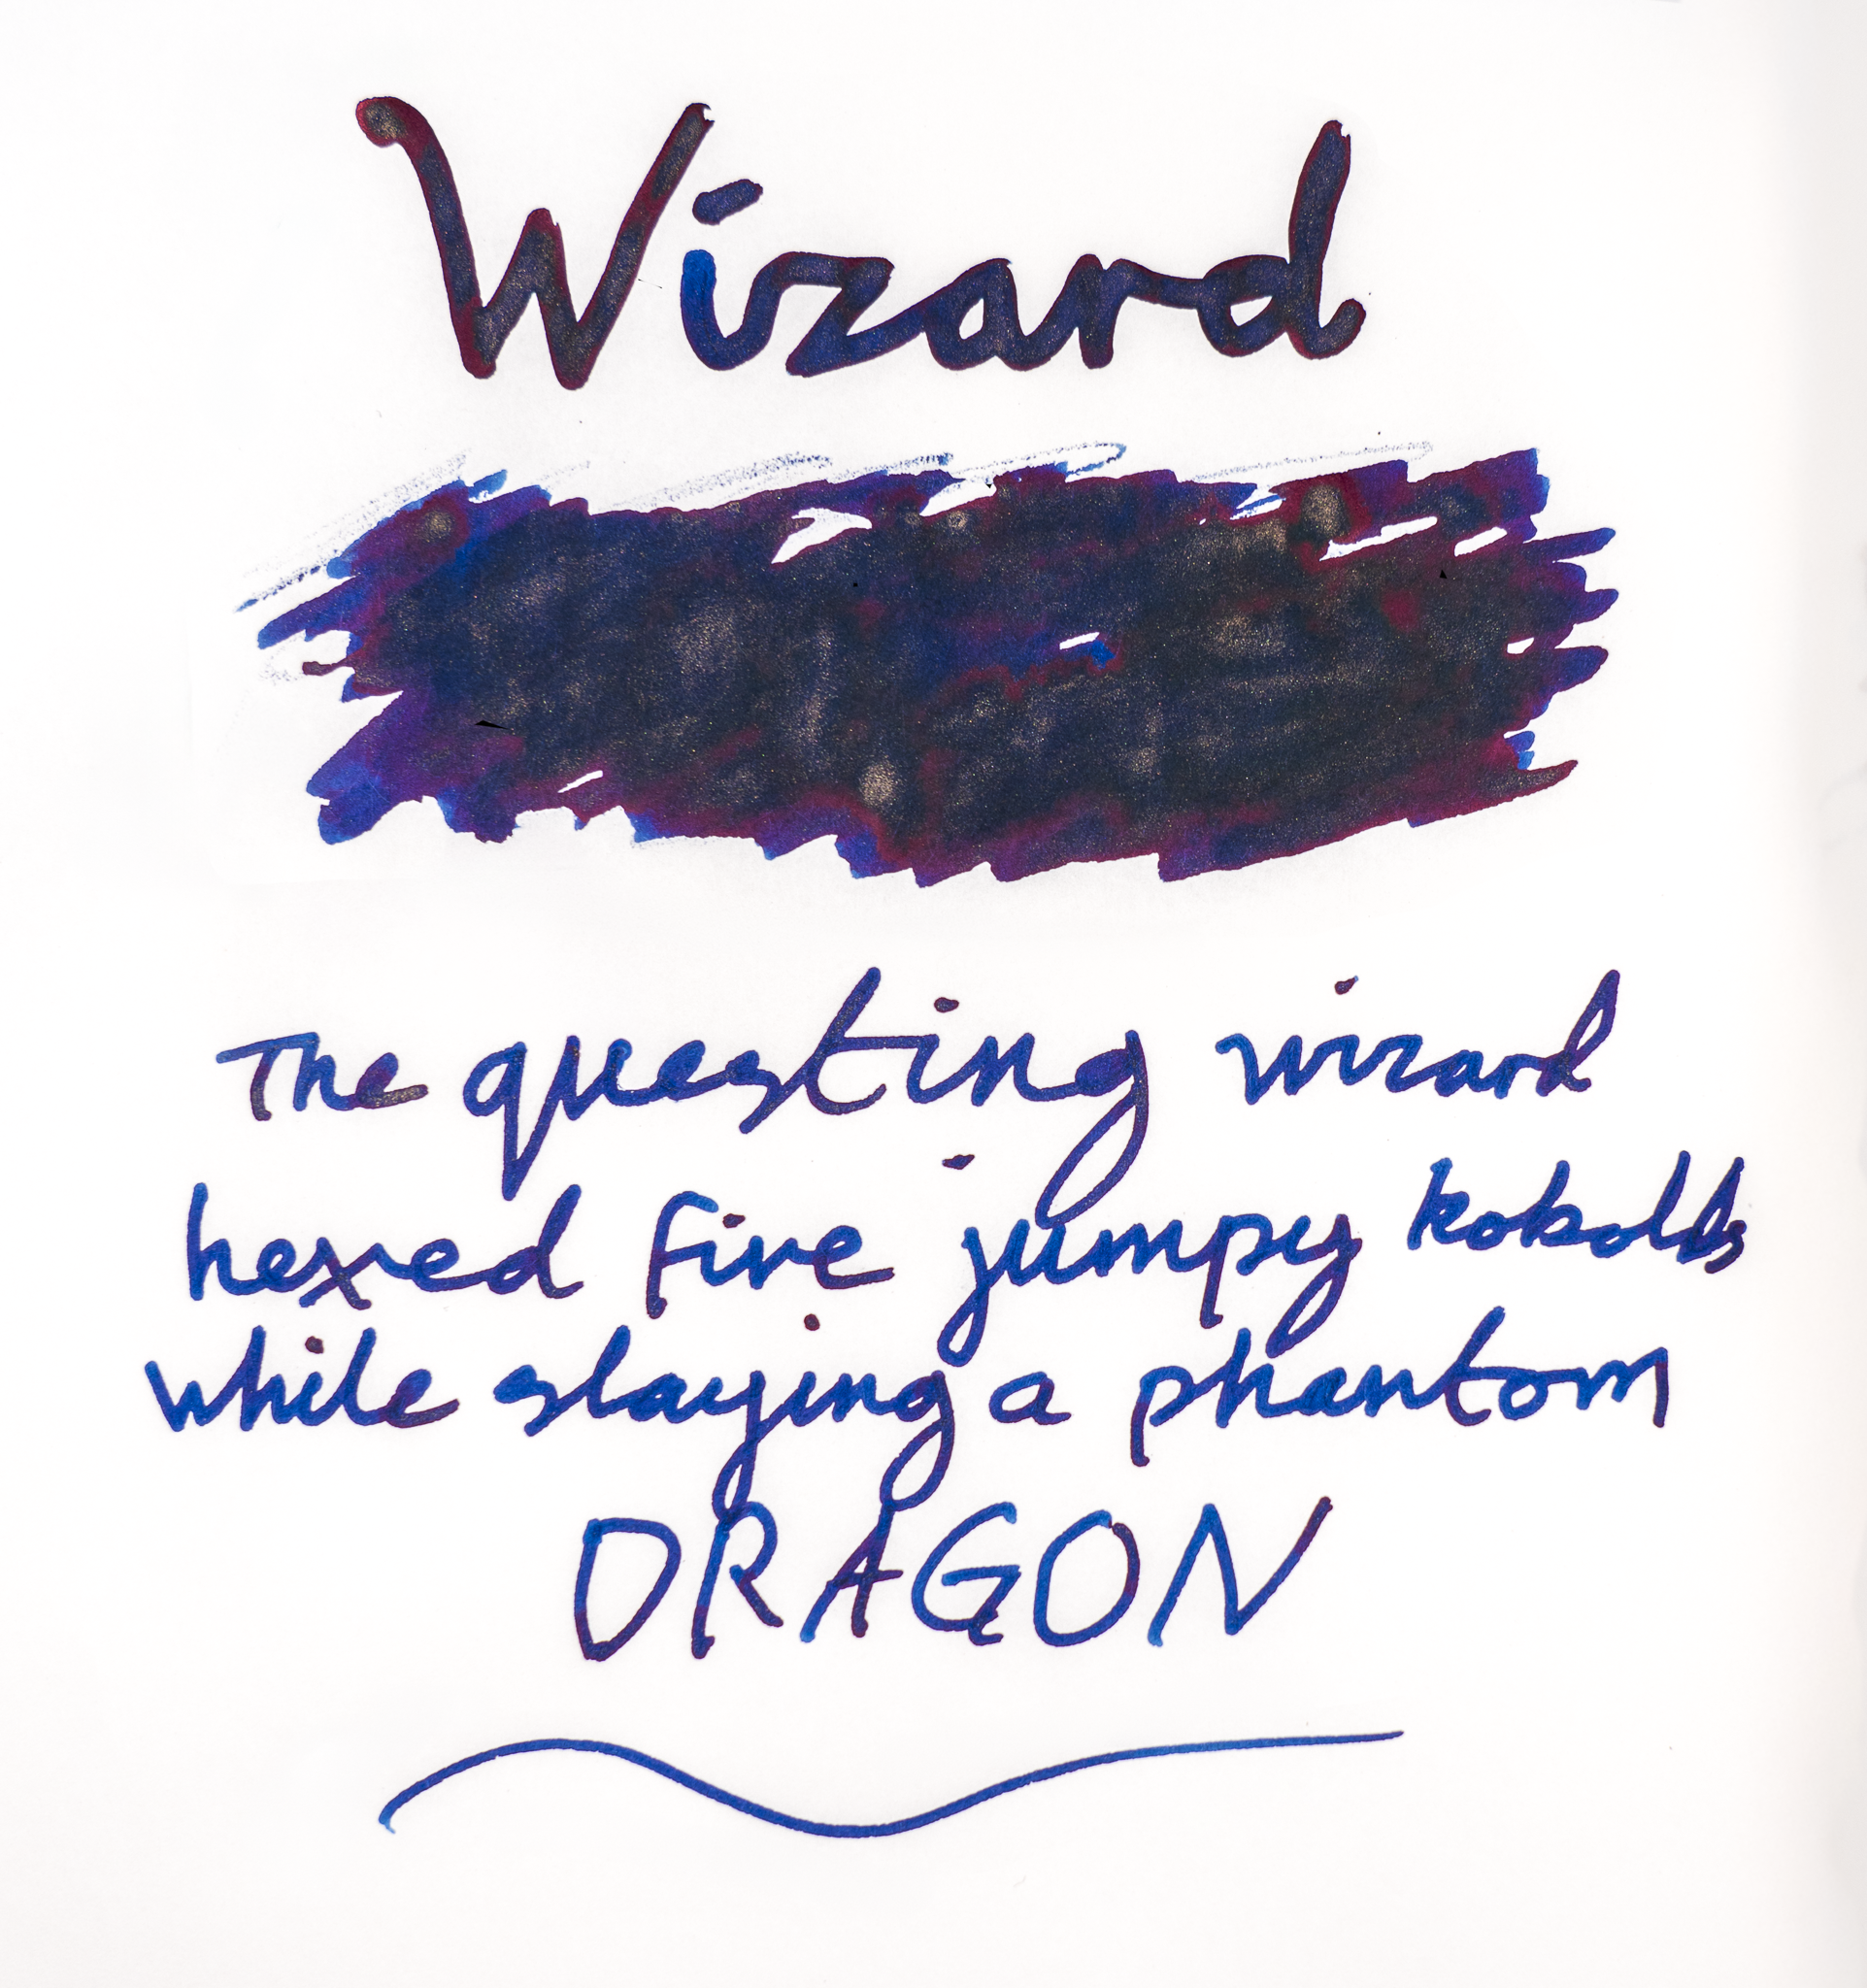 Wizard
The questing wizard
hexed five jumpy kobolds
while slaying a phantom
DRAGON